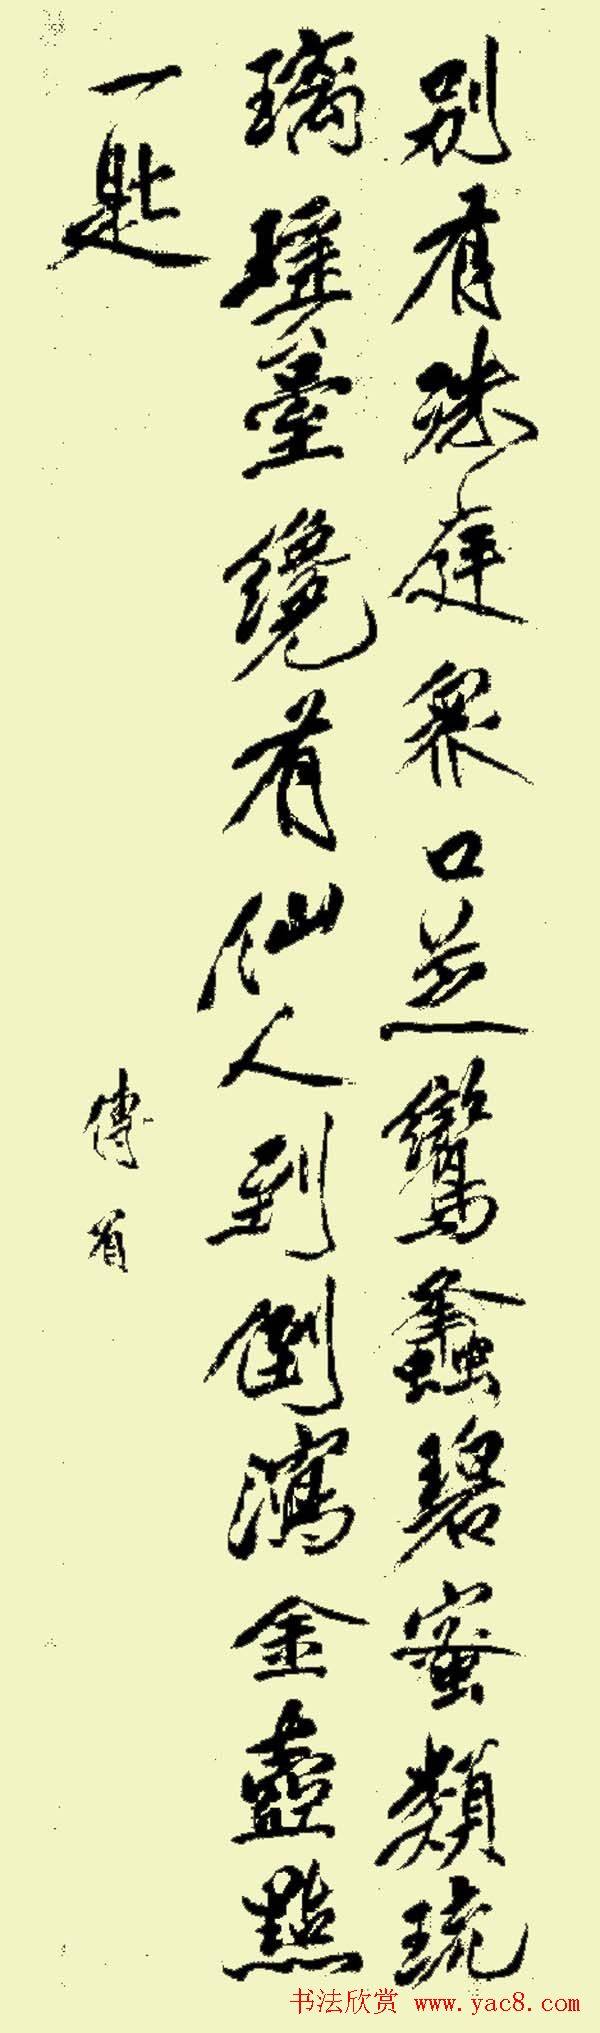 别有殊庭眾口芝鸞蠡碧蜜類琉
璃瑤臺纔有仙人到倒瀉金壺點
一匙
傅眉
书法欣赏 www.yac8.com